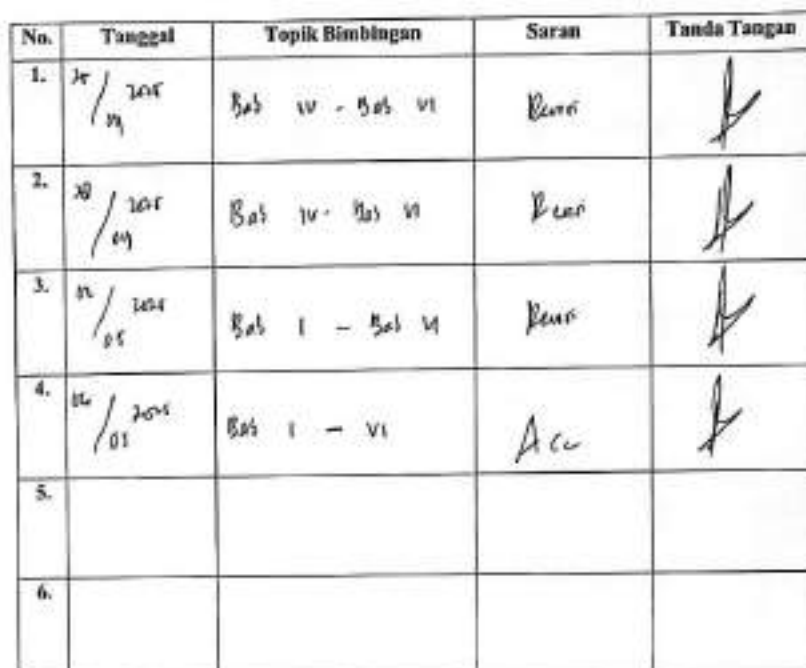 No. Tanggal Topik Bimbingan Saran Tanda Tangan
1. 25/04 2025 Bab IV - Bab VI Revisi
2. 28/04 2025 Bab IV - Bab VI Revisi
3. 02/05 2025 Bab I - Bab VI Revisi
4. 2025 Bab I - VI Acc
5.
6.